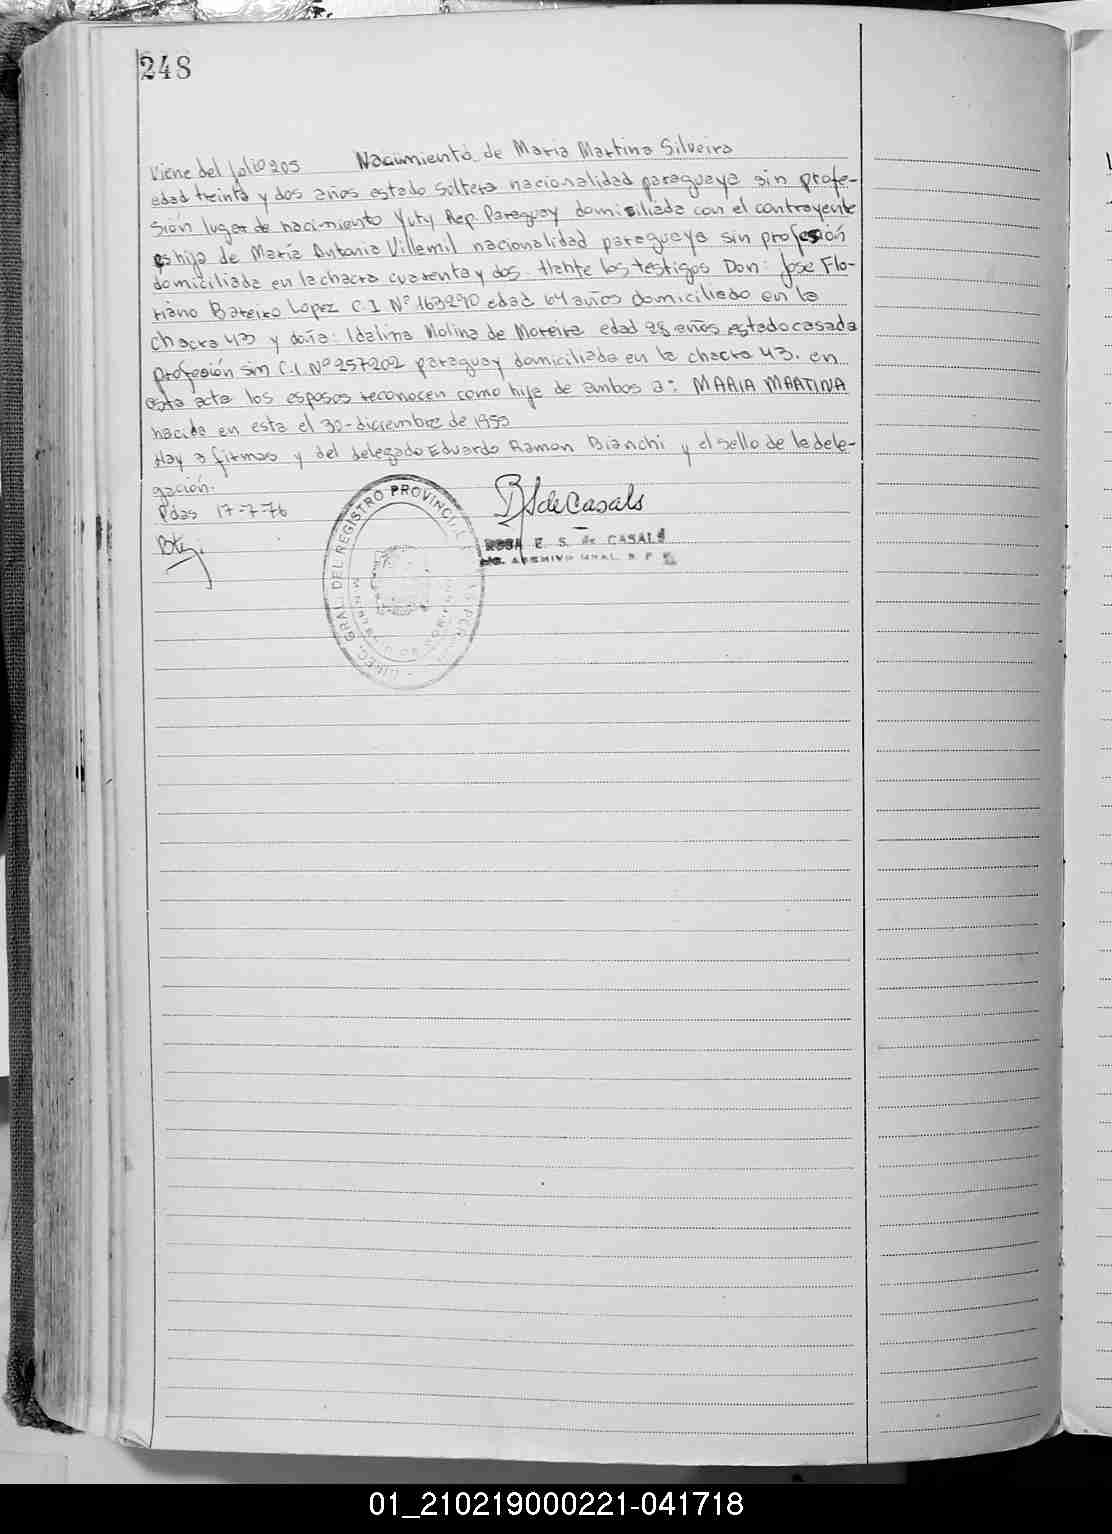 248
Viene del folio 205 Nacimiento de Maria Martina Silveira
edad treinta y dos años estado Soltera nacionalidad paraguaya sin profe-
sión lugar de nacimiento Yuty Rep. Paraguay domisiliada con el contrayente
es hija de María Antonia Villamil nacionalidad paraguaya sin profesión
domiciliada en la chacra cuarenta y dos. Hante los testigos Don: Jose Flo-
riano Bareiro Lopez C.I Nº 163290 edad 64 años domiciliado en la
chacra 43 y doña: Idalina Molina de Moreira edad 28 años estado casada
profesión sin C.I. Nº 257202 paraguay domiciliada en la chacra 43. en
esta acta los esposos reconocen como hija de ambos a: MARIA MARTINA
nacida en esta el 30-diciembre de 1959
Hay 3 firmas y del delegado Eduardo Ramon Bianchi y el sello de la dele-
gación.
Pdas 17-7-76
de Casals
ROSA E. S. de CASALS
ARCHIVO GRAL. R. P.
DIREC. GRAL. DEL REGISTRO PROVINCIAL
01_210219000221-041718